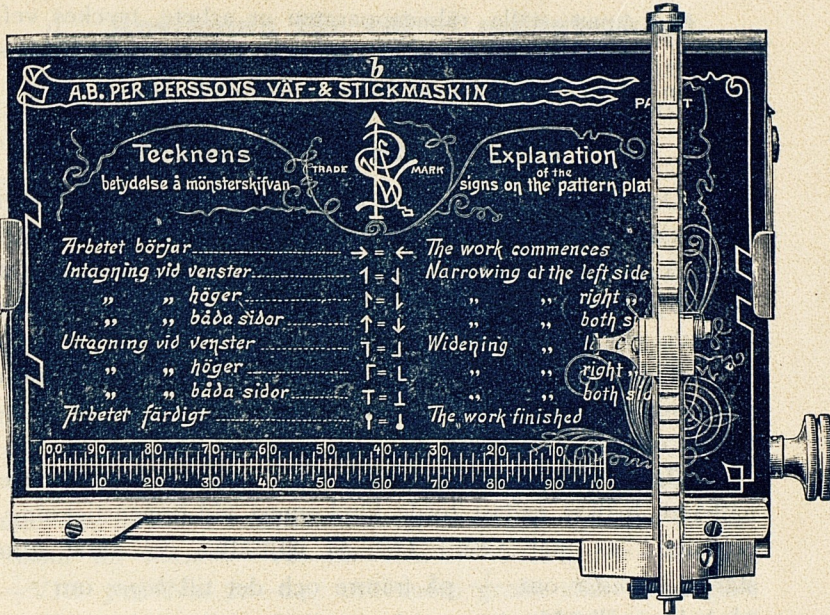 b
A.B. PER PERSSONS VÄF-& STICKMASKIN
Tecknens
betydelse å mönsterskifvan
TRADE MARK
Explanation
of the
signs on the pattern
Arbetet börjar → = ← The work commences
Intagning vid venster ↿ = ⇃ Narrowing at the left side
„ „ höger ↾ = ⇂ „ „ right „
„ „ båda sidor ↑ = ↓ „ „ both
Uttagning vid venster ┐ = ┘ Widening „
„ „ höger ┌ = └ „ „ right „
„ „ båda sidor ┬ = ┴ „ „ both
Arbetet färdigt = The work finished
100 90 80 70 60 50 40 30 20 10
10 20 30 40 50 60 70 80 90 100